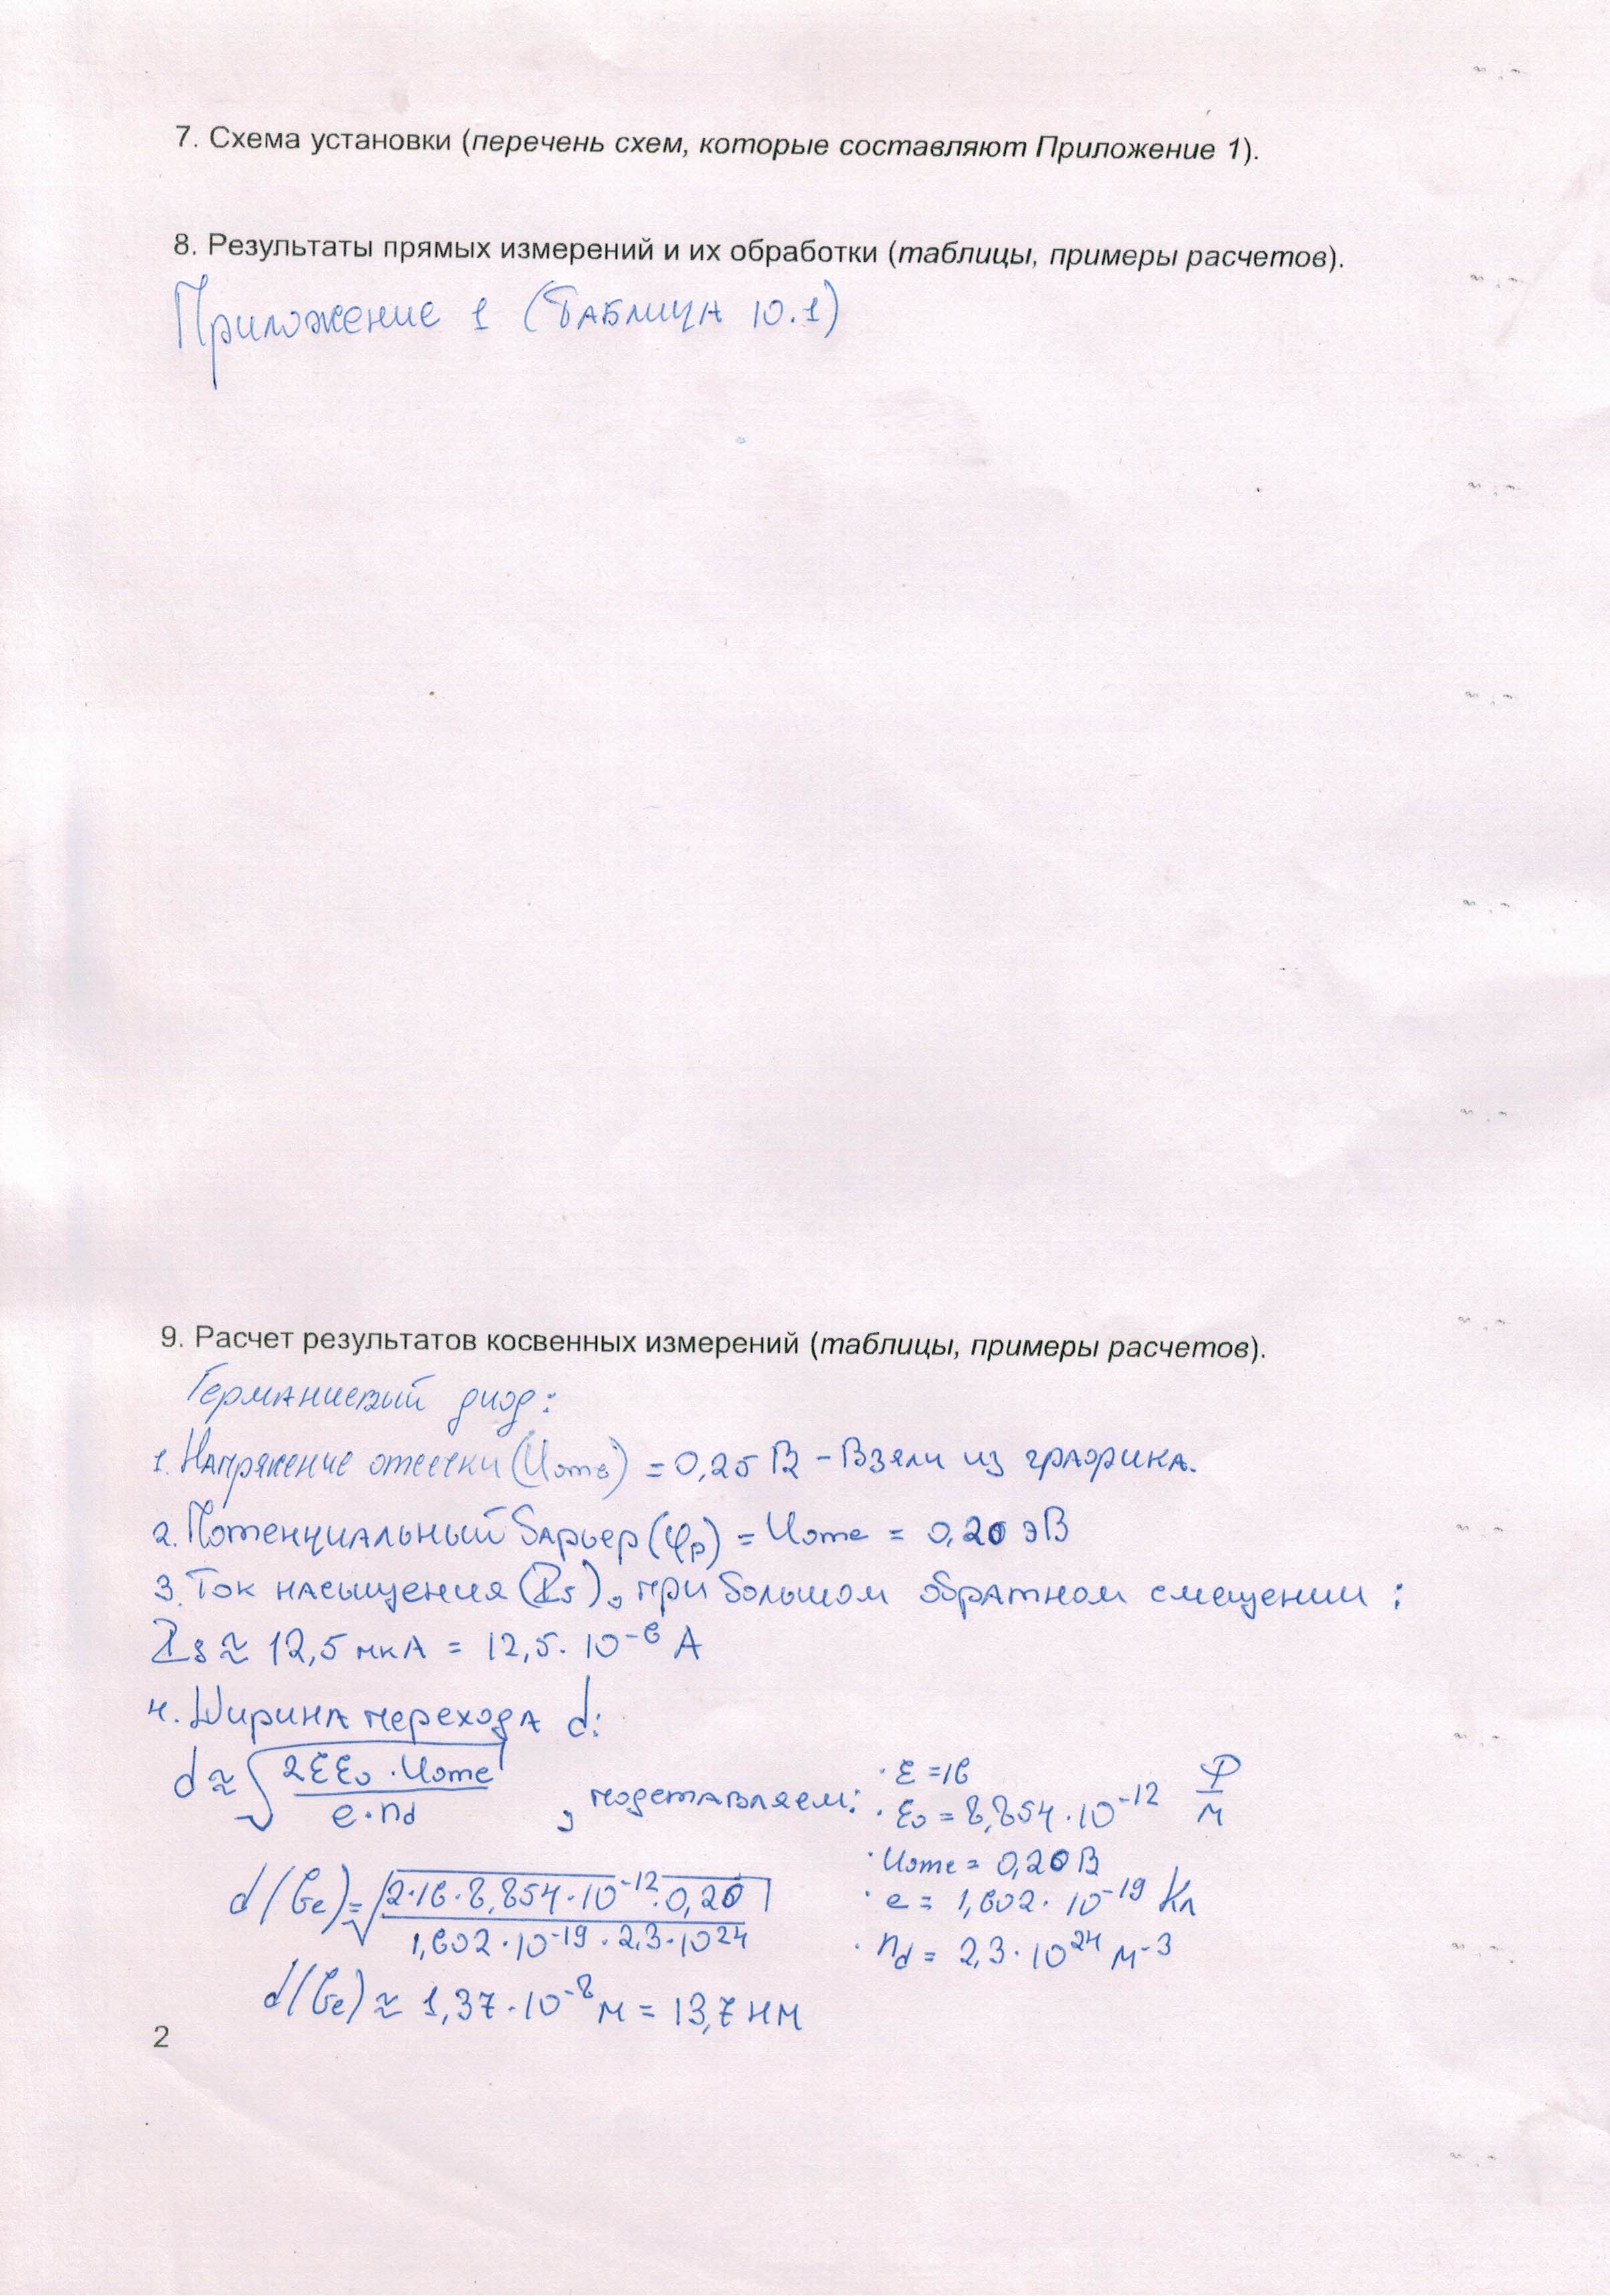 7. Схема установки (перечень схем, которые составляют Приложение 1).
8. Результаты прямых измерений и их обработки (таблицы, примеры расчетов).
Приложение 1 (Таблица 10.1)
9. Расчет результатов косвенных измерений (таблицы, примеры расчетов).
Германиевый диод:
1. Напряжение отсечки (Uотс) = 0,25 В - Взяли из графика.
2. Потенциальный барьер (φp) = Uотс = 0,20 эВ
3. Ток насыщения (Is), при большом обратном смещении:
Is ≈ 12,5 мкА = 12,5 · 10^-6 А
4. Ширина перехода d:
d ≈ √(2εε0 · Uотс / e · nd), подставляем:
· ε = 16
· ε0 = 8,854 · 10^-12 Ф/м
· Uотс = 0,20 В
· e = 1,602 · 10^-19 Кл
· nd = 2,3 · 10^24 м^-3
d(Ge) = √(2·16·8,854·10^-12·0,20 / 1,602·10^-19·2,3·10^24)
d(Ge) ≈ 1,37 · 10^-8 м = 13,7 нм
2